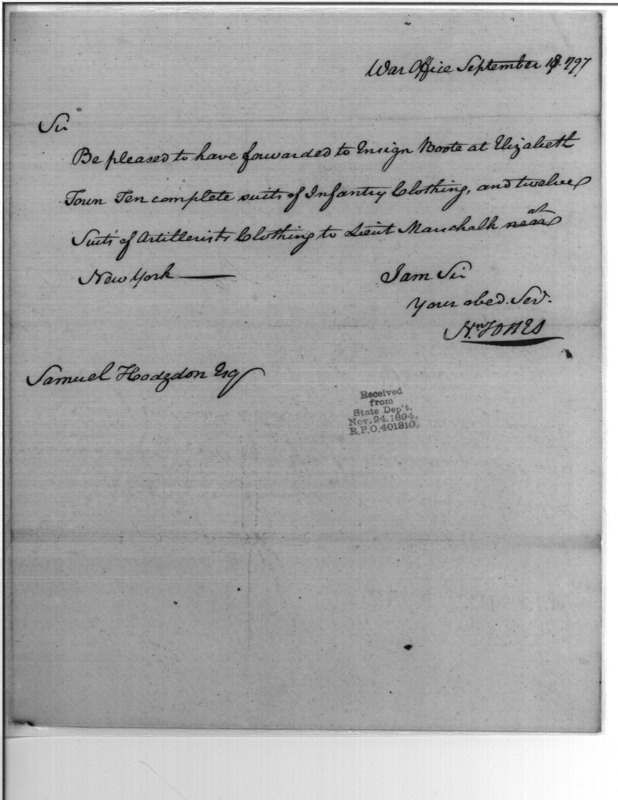 War Office September 1797
Sir
Be pleased to have forwarded to Ensign Boote at Elizabeth
Town Ten complete suits of Infantry Clothing, and twelve
Suits of Artillerists Clothing to Lieut Marschalk near at
New York
I am Sir
Your obed. Serv.
Wm JONES
Samuel Hodgdon Esq
Received
from
State Dep't.
Nov. 24, 1894,
R.P.O. 401310.